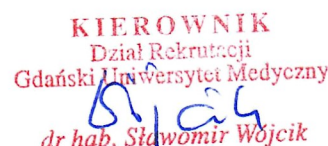 KIEROWNIK
Dział Rekrutacji
Gdański Uniwersytet Medyczny
dr hab. Sławomir Wójcik